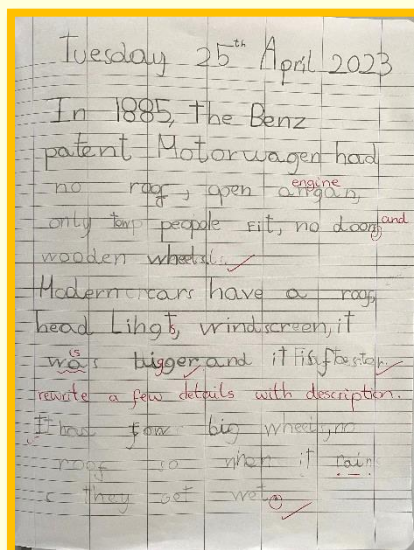 Tuesday 25th April 2023
In 1885, The Benz
patent Motorwagen had
engine
no roof, open
and
only peopole Fit, no doors
wooden wheels.
Modern cars have a roof,
head Lihgts, windscreen, it
is
was bigger and it is faster.
rewrite a few details with description.
It has fow big wheels, no
roof so when it rain
they get wet.